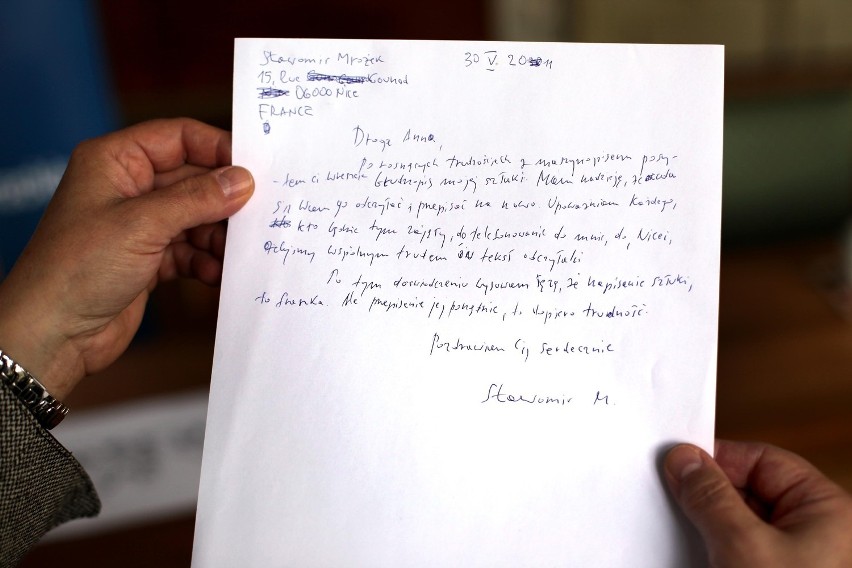 Sławomir Mrożek
30 V. 2011
15, Rue Gounod
06000 Nice
FRANCE
Droga Anna,
Po rosnących trudnościach z maszynopisem posy-
łam ci wreszcie brudnopis mojej sztuki. Mam nadzieję, że uda
się Wam go odczytać i przepisać na nowo. Upoważniam każdego,
kto będzie tym zajęty, do telefonowania do mnie, do Nicei,
abyśmy wspólnym trudem ów tekst odczytali
Po tym doświadczeniu wysuwam tezę, że napisanie sztuki,
to fraszka. Ale przepisanie jej porządnie, to dopiero trudność.
Pozdrawiam Cię serdecznie
Sławomir M.